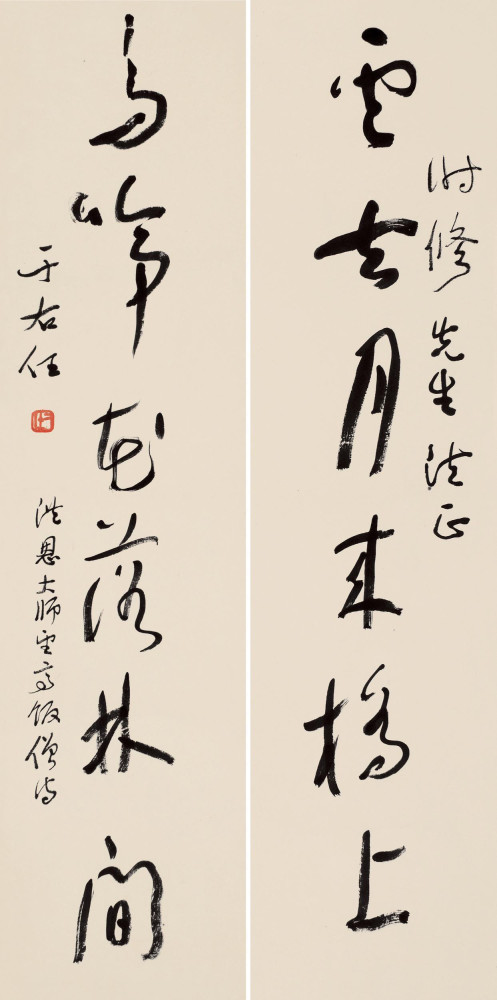 時修先生法正
雲去月來橋上
鳥啼花落林間
于右任
洪恩大師望亭飯僧詩